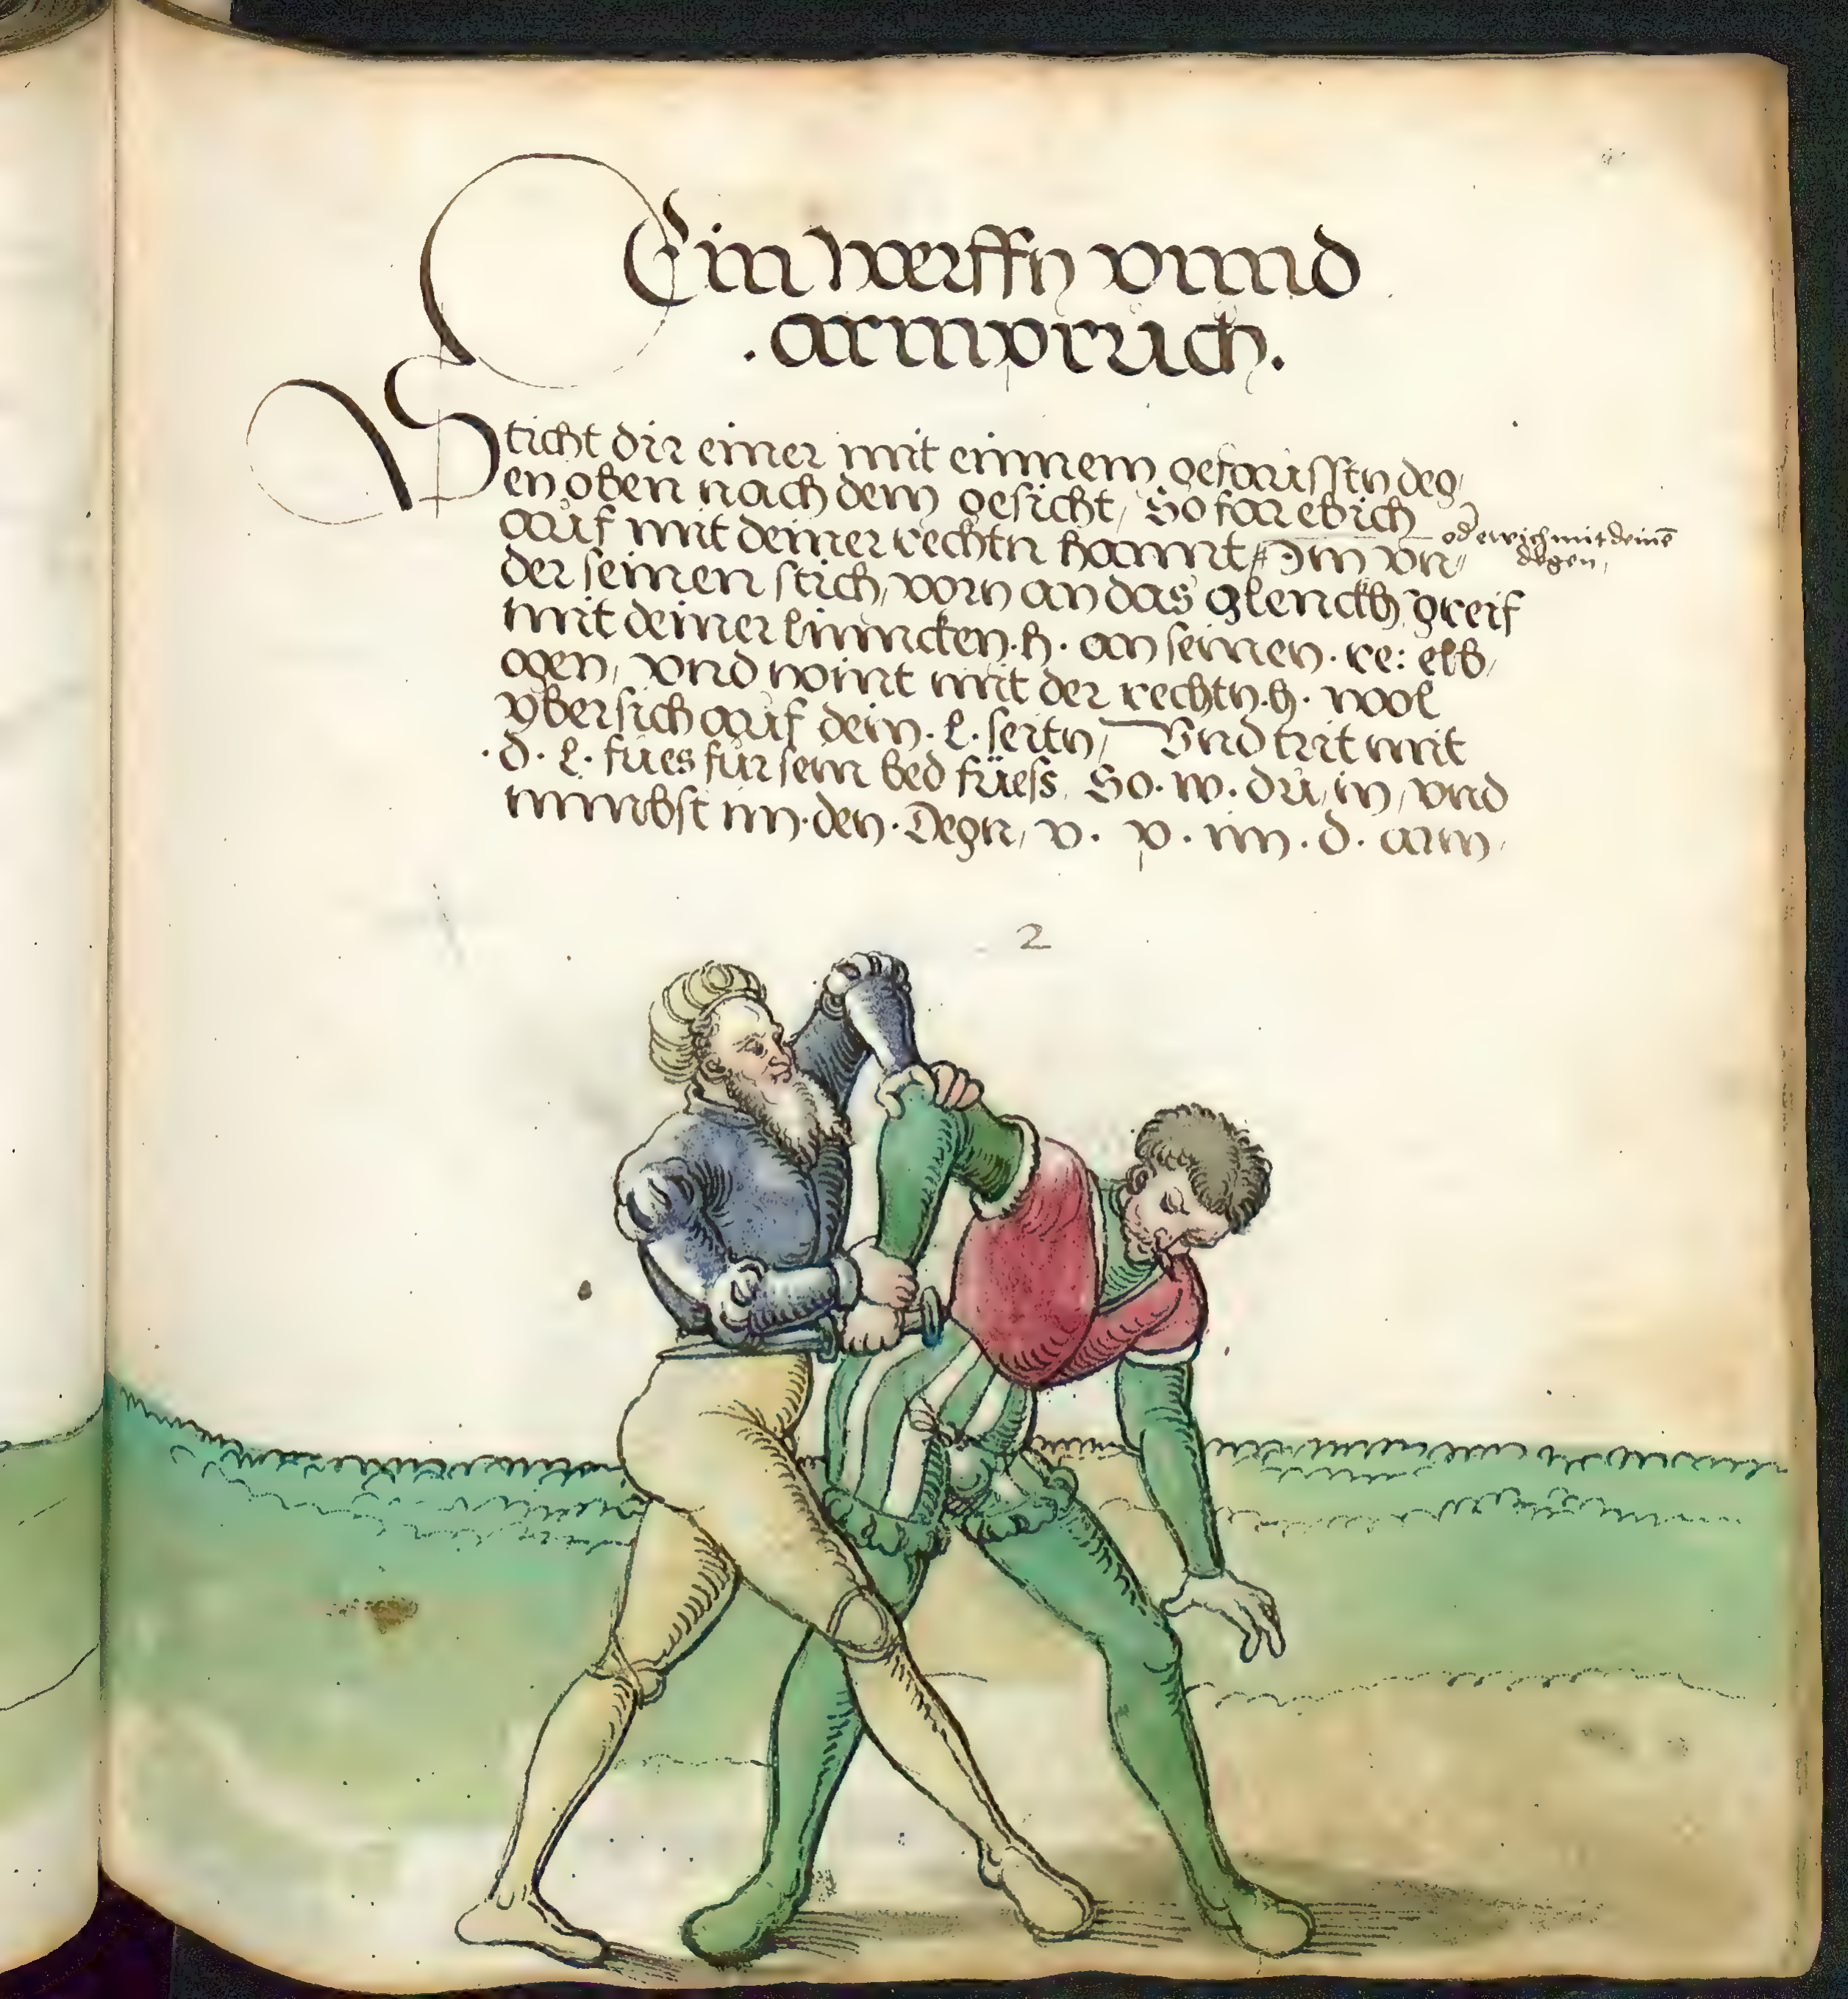 Ein werffn vnnd
. armpruch.
Sticht dir einer mit einnem gefausstn deg,
en oben nach dem gesicht, So far ebich
auf mit deiner rechtn hannt, # Im vn,
oder ewich mit deinē
degen,
der seinen stich, vorn an das glenckh greif
mit deiner linncken . h . an seinen . re: elb,
ogen, vnd nimt mit der rechtn . h . wol
vbersich auf dein . l . seitn, Vnd trit mit
. d . l . fues für sein bed füess, So . w . du, in, vnd
nimbst im . den . Degn, v . p . im . d . arm,
2